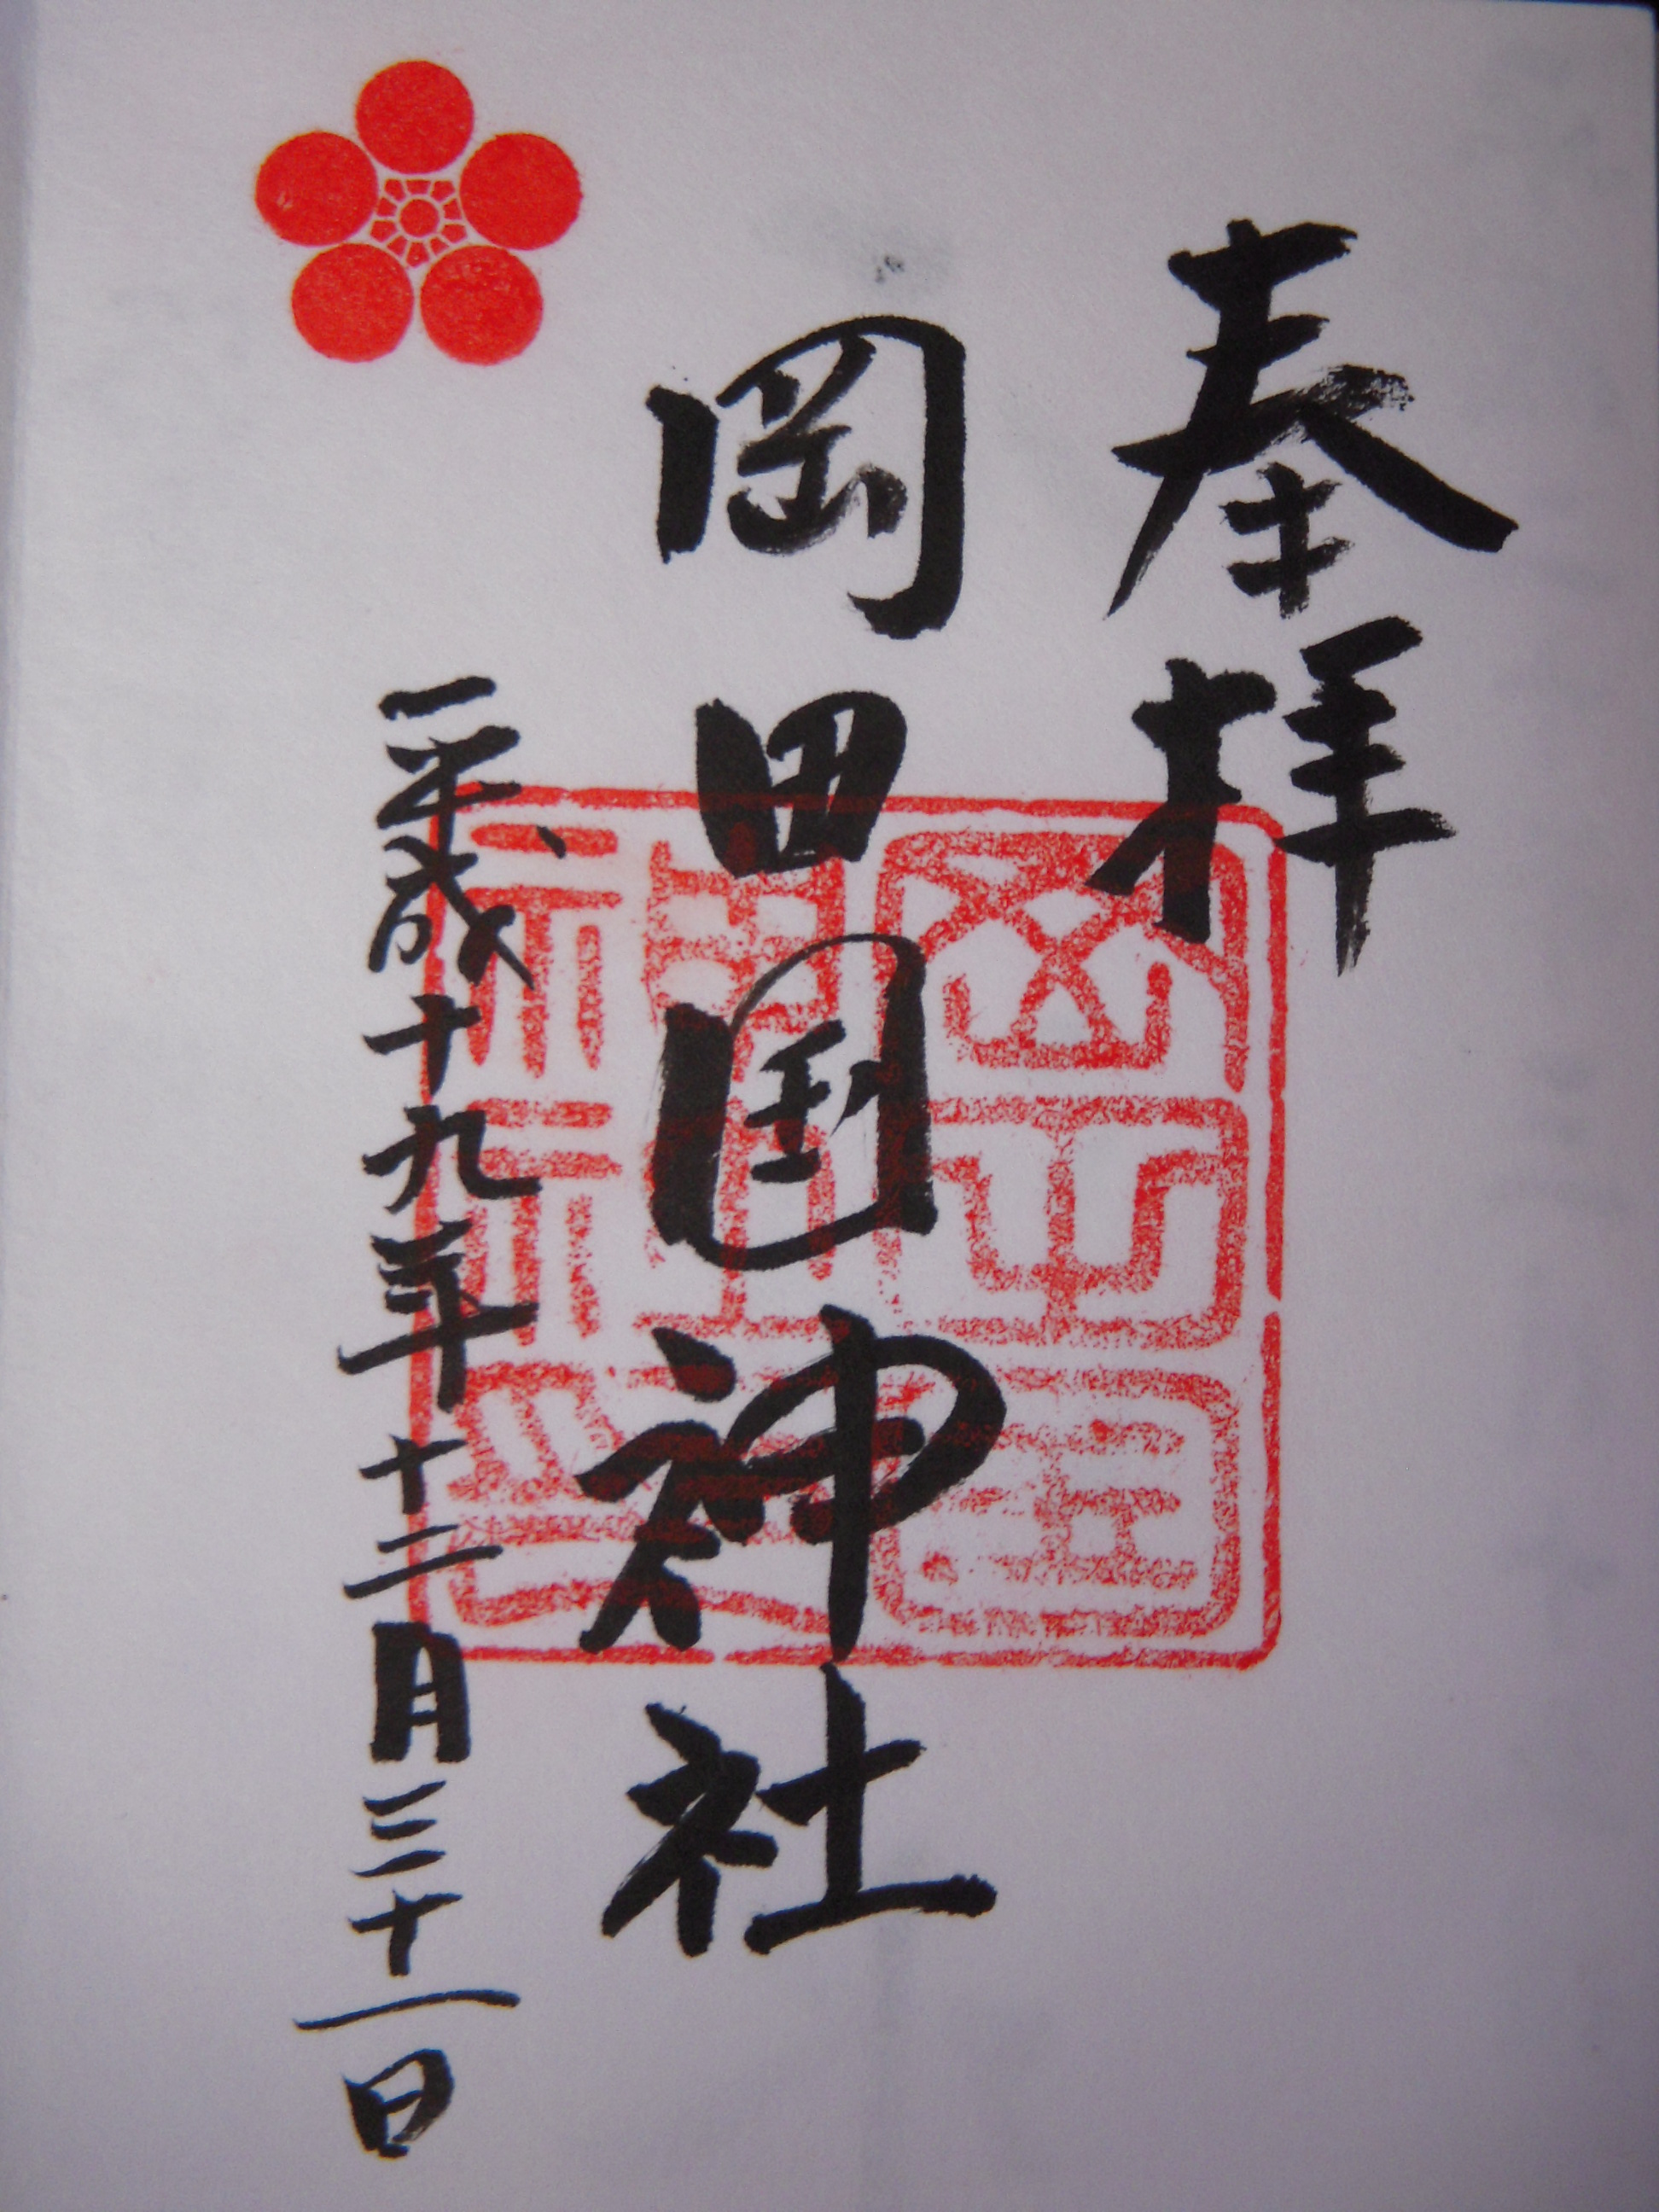 奉拝
岡田国神社
平成十九年十二月三十一日